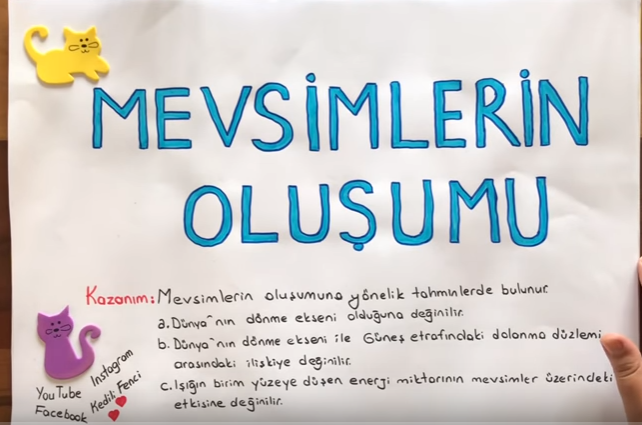 MEVSİMLERİN
OLUŞUMU
Kazanım: Mevsimlerin oluşumuna yönelik tahminlerde bulunur.
a. Dünya'nın dönme ekseni olduğuna değinilir.
b. Dünya'nın dönme ekseni ile Güneş etrafındaki dolanma düzlemi
arasındaki ilişkiye değinilir.
c. Işığın birim yüzeye düşen enerji miktarının mevsimler üzerindeki
etkisine değinilir.
YouTube
Instagram
Facebook
Kedik Fenci